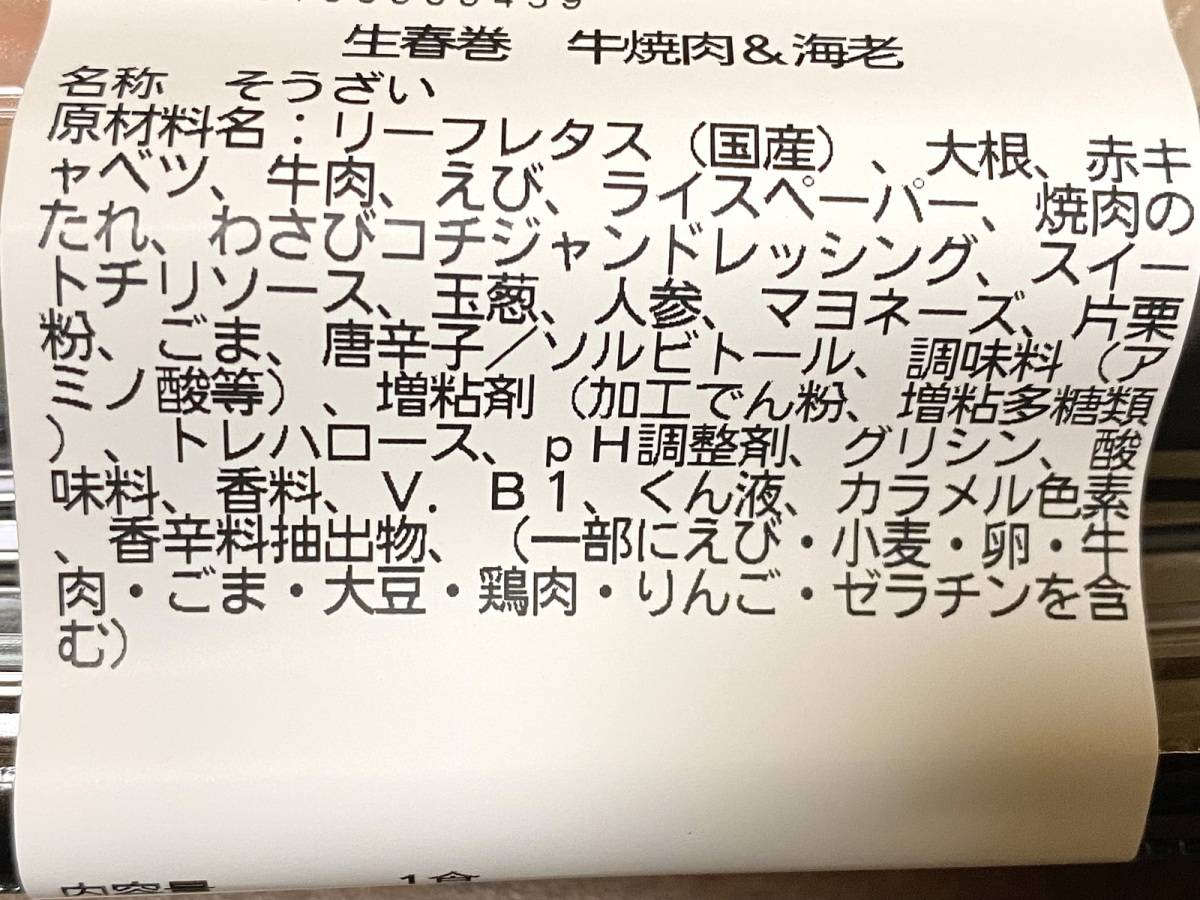 生春巻　牛焼肉＆海老
名称　そうざい
原材料名：リーフレタス（国産）、大根、赤キ
ャベツ、牛肉、えび、ライスペーパー、焼肉の
たれ、わさびコチジャンドレッシング、スイー
トチリソース、玉葱、人参、マヨネーズ、片栗
粉、ごま、唐辛子／ソルビトール、調味料（ア
ミノ酸等）、増粘剤（加工でん粉、増粘多糖類
）、トレハロース、ｐＨ調整剤、グリシン、酸
味料、香料、Ｖ．Ｂ１、くん液、カラメル色素
、香辛料抽出物、（一部にえび・小麦・卵・牛
肉・ごま・大豆・鶏肉・りんご・ゼラチンを含
む）
内容量　1食